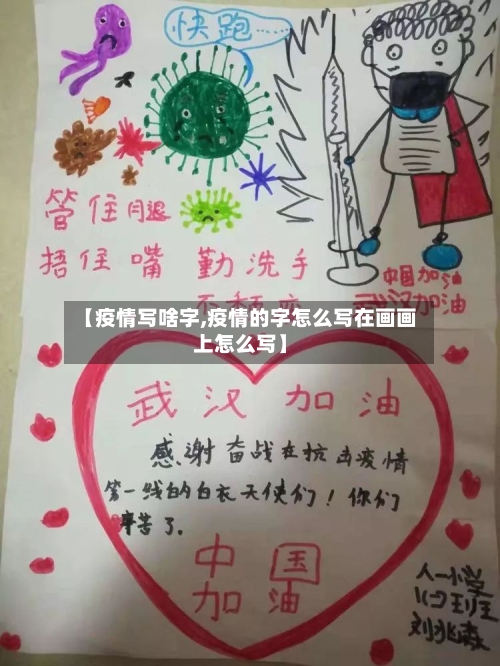 快跑……
管住腿
捂住嘴 勤洗手
中国加油
武汉加油
【疫情写啥字,疫情的字怎么写在画画
上怎么写】
武汉加油
感谢奋战在抗击疫情
第一线的白衣天使们！你们
辛苦了.
中国
加油
人一小学